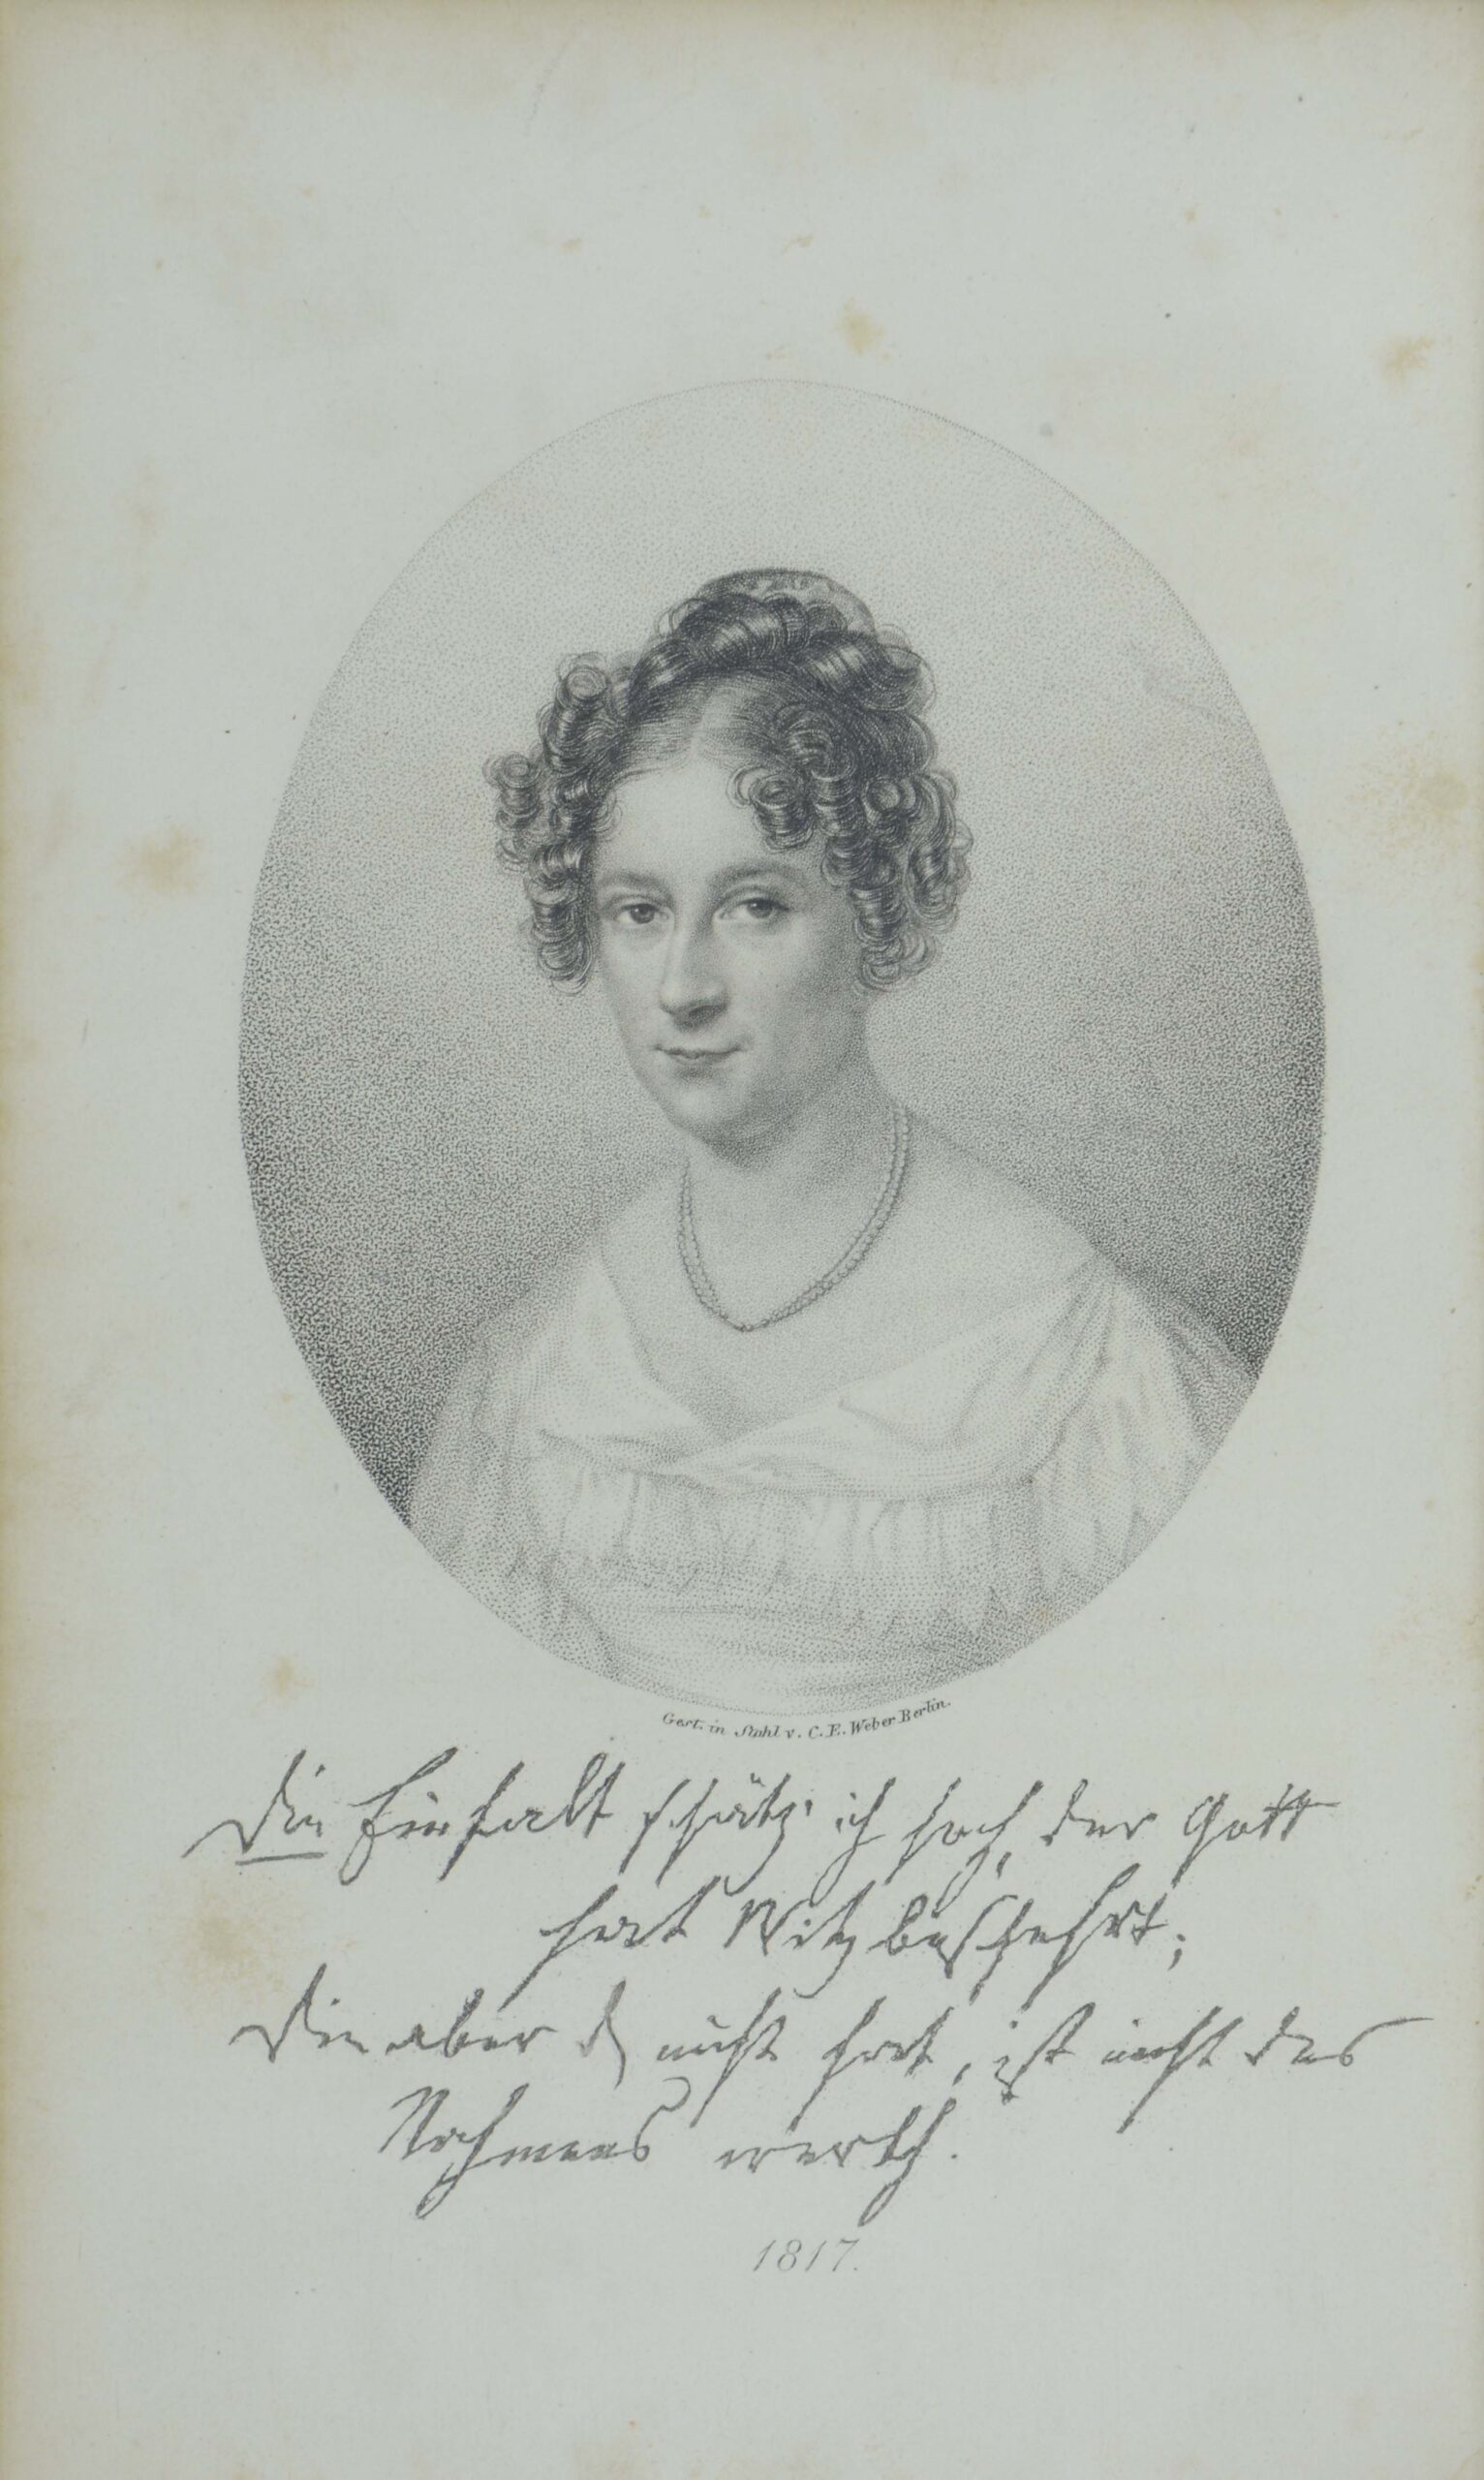 Gest. in Stahl v. C. E. Weber Berlin.
Die Einfalt schätz' ich hoch, der Gott
hat Witz beschehrt;
Die aber den nicht hat, ist nicht des
Nahmens werth.
1817.